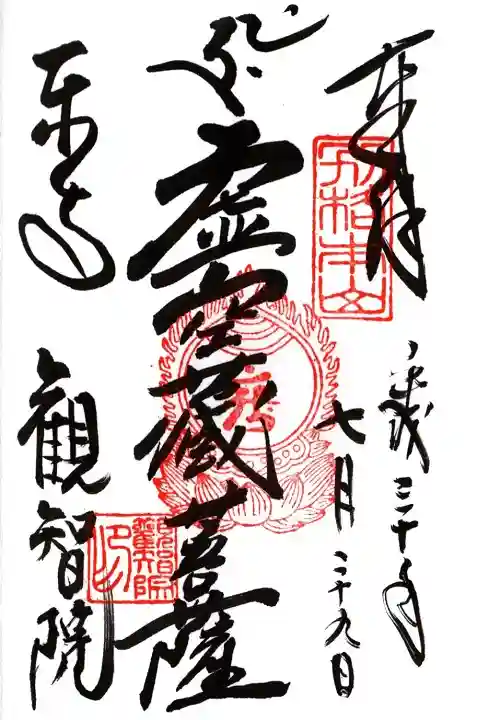 奉拝
別格本山
平成三十年
七月二十九日
虚空蔵菩薩
東寺
観智院
觀智院印